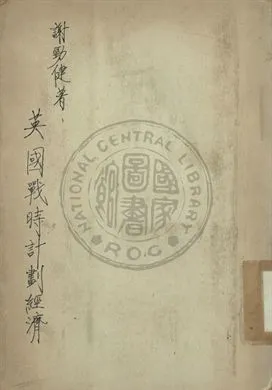 謝勁健著、
英國戰時計劃經濟
NATIONAL CENTRAL LIBRARY
R.O.C
國家圖書館